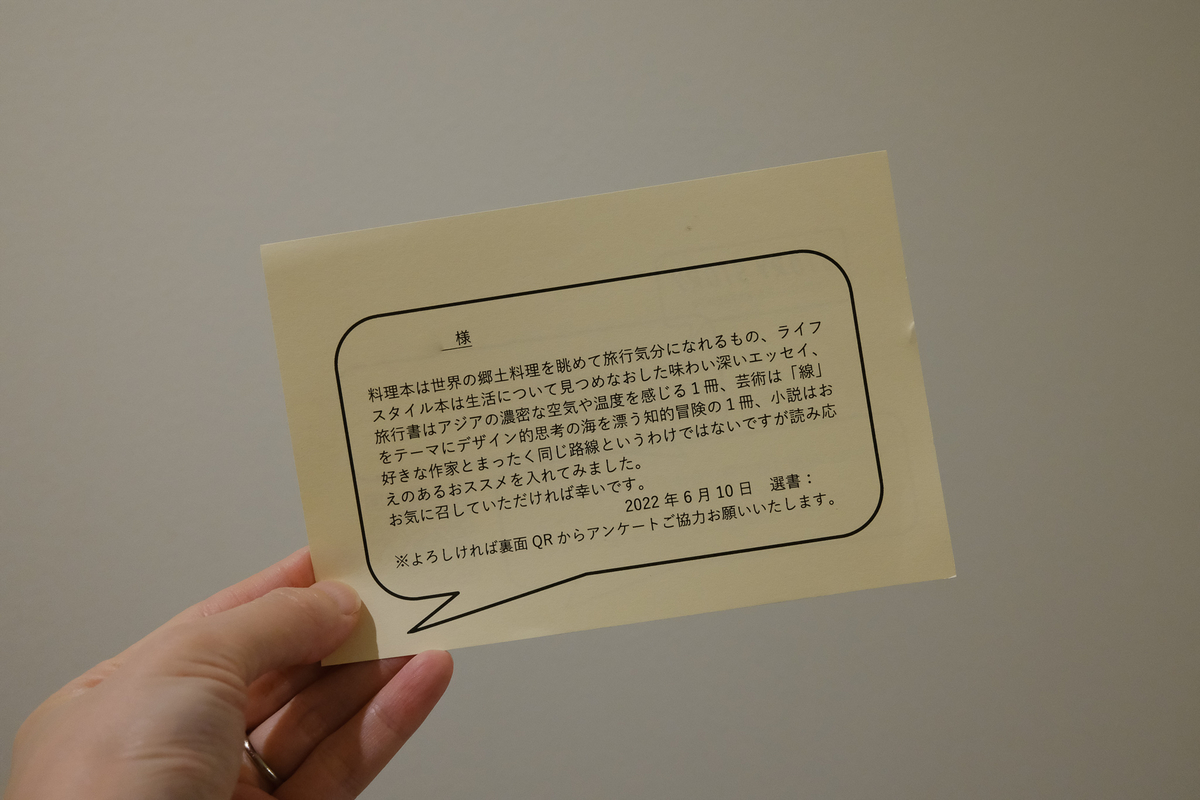 様
料理本は世界の郷土料理を眺めて旅行気分になれるもの、ライフ
スタイル本は生活について見つめなおした味わい深いエッセイ、
旅行書はアジアの濃密な空気や温度を感じる１冊、芸術は「線」
をテーマにデザイン的思考の海を漂う知的冒険の１冊、小説はお
好きな作家とまったく同じ路線というわけではないですが読み応
えのあるおススメを入れてみました。
お気に召していただければ幸いです。
2022 年 6 月 10 日　選書：
※よろしければ裏面 QR からアンケートご協力お願いいたします。